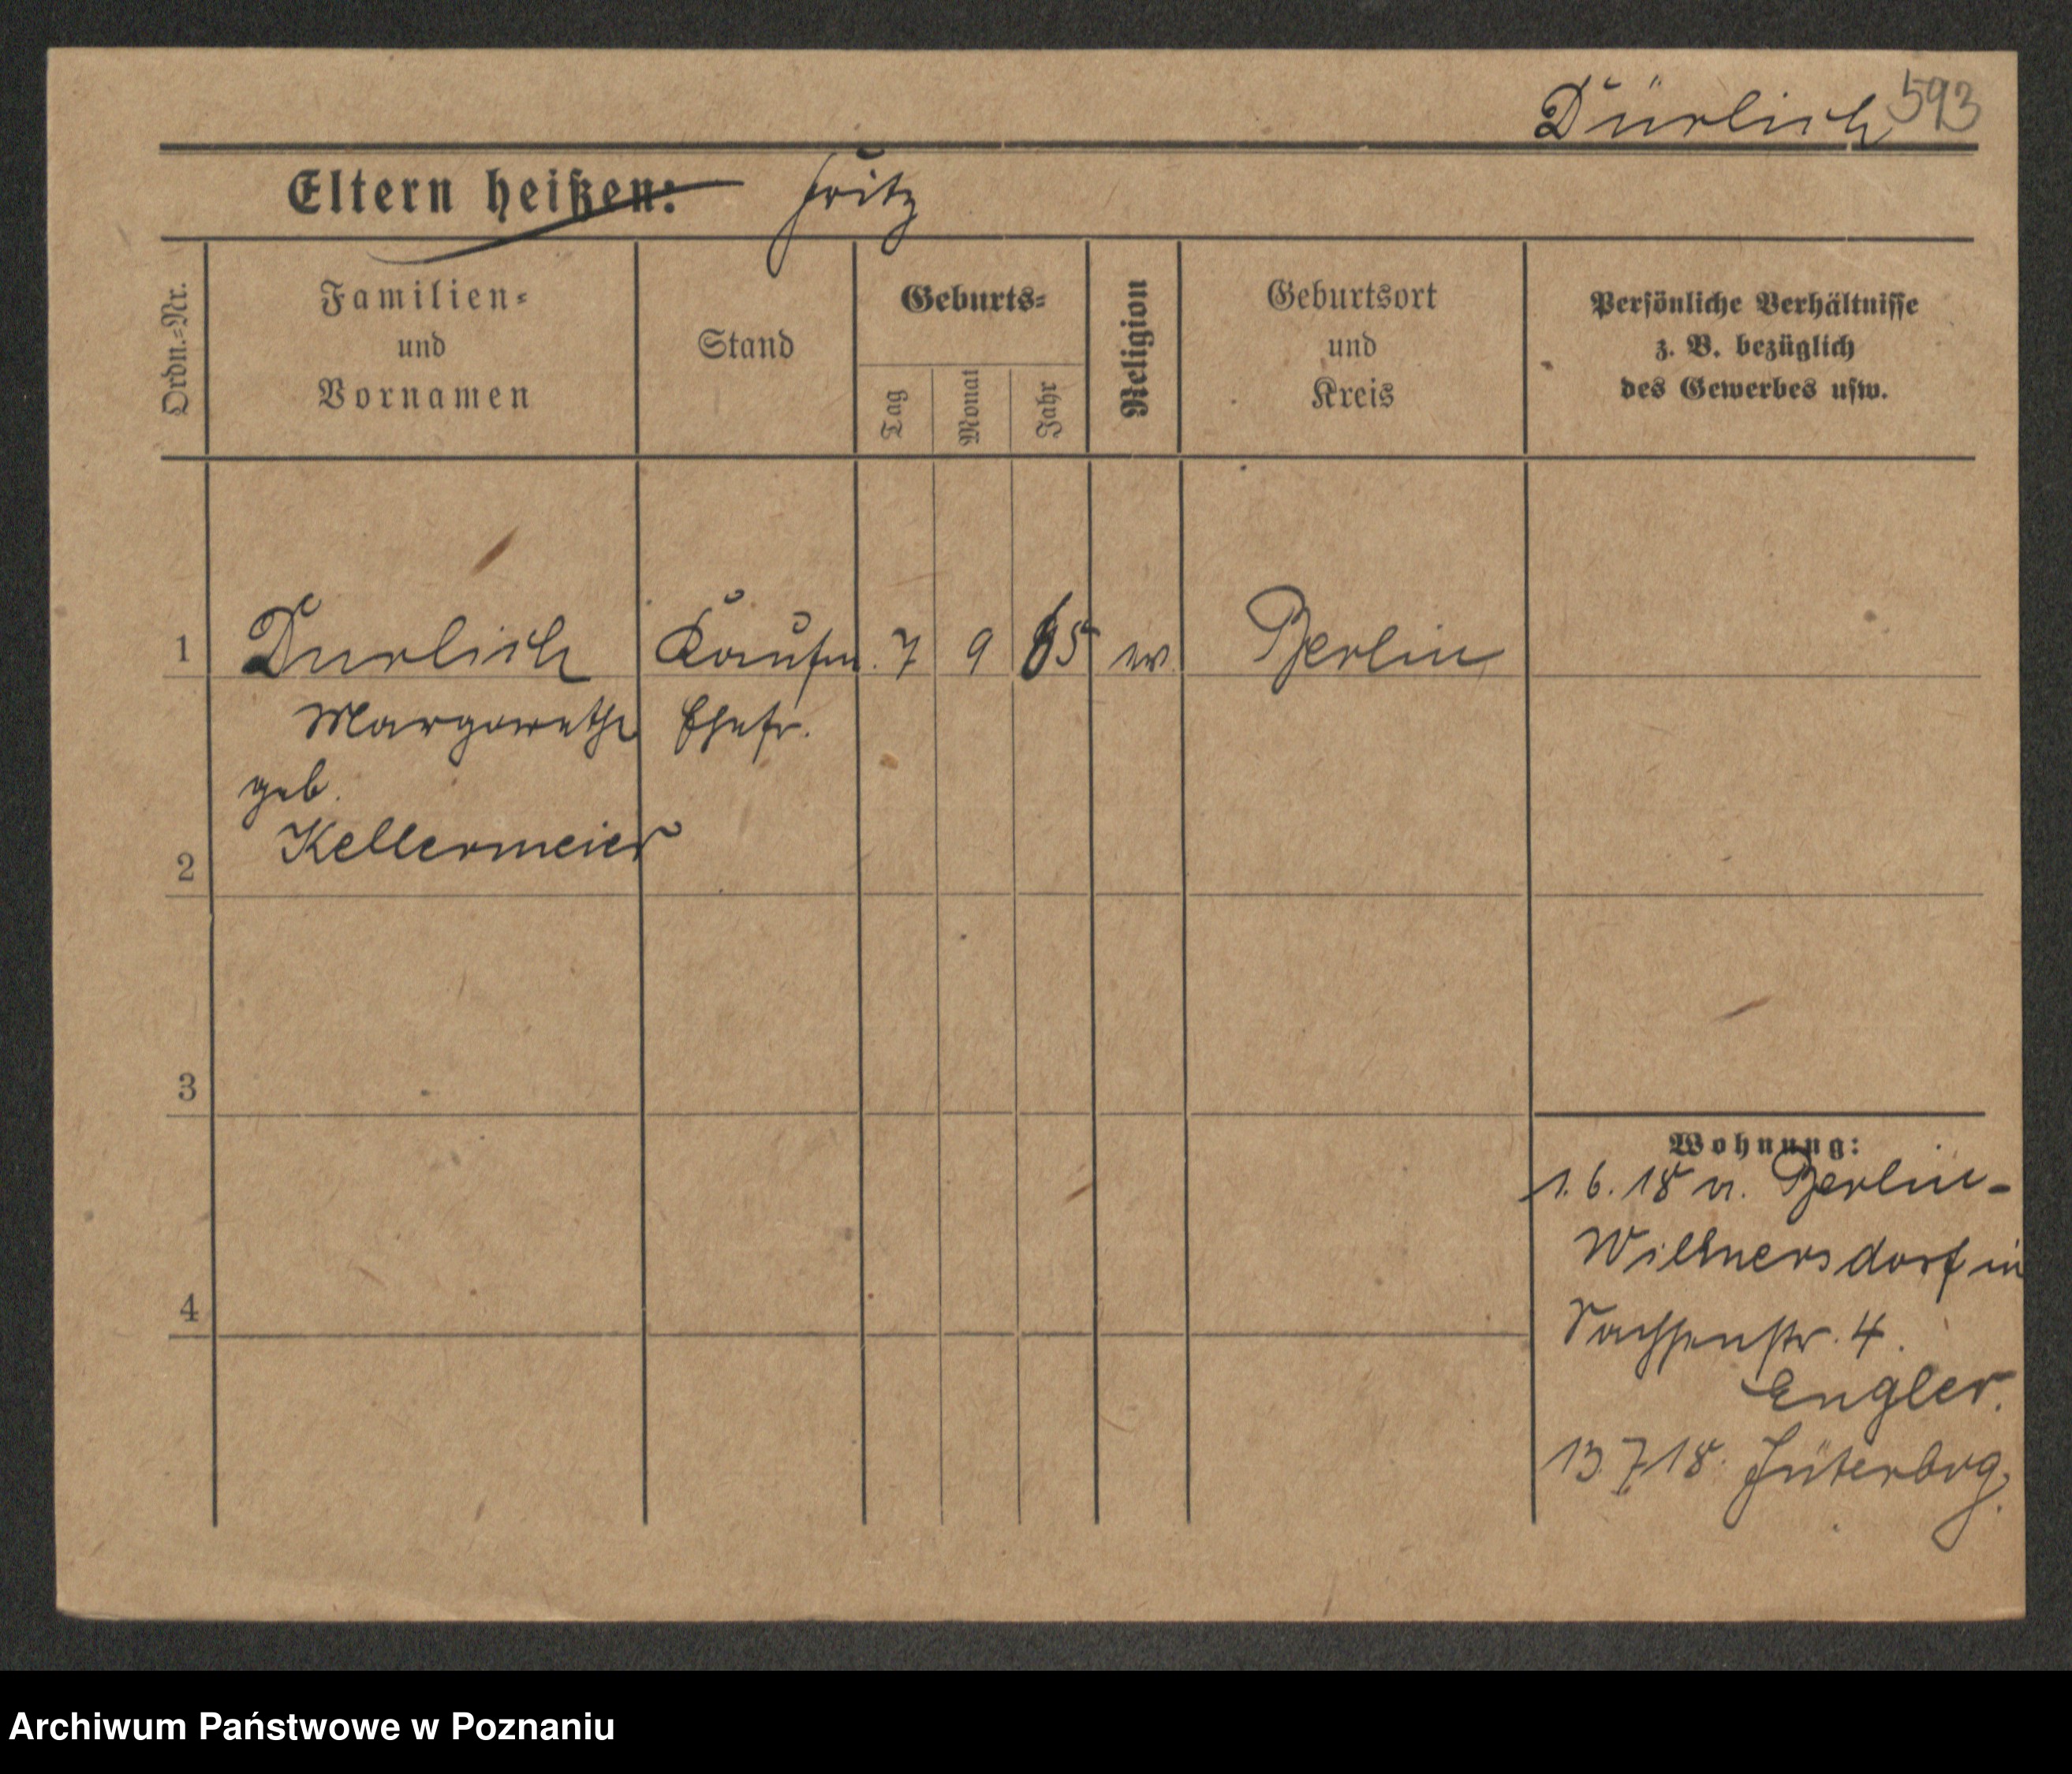 Dürlich 593
Eltern heißen: Fritz
Ordn.=Nr.
Familien=
und
Vornamen
Stand
Geburts=
Tag
Monat
Jahr
Religion
Geburtsort
und
Kreis
Persönliche Verhältnisse
z. B. bezüglich
des Gewerbes usw.
1 Dürlich Kaufm. 7 9 65 ev Berlin
Margarethe Ehefr.
geb.
2 Kellermeier
3
4
Wohnung:
1. 6. 18 n. Berlin-
Wilmersdorf in
Sachsenstr. 4.
Engler.
13. 7 18. Jüterbog.
Archiwum Państwowe w Poznaniu